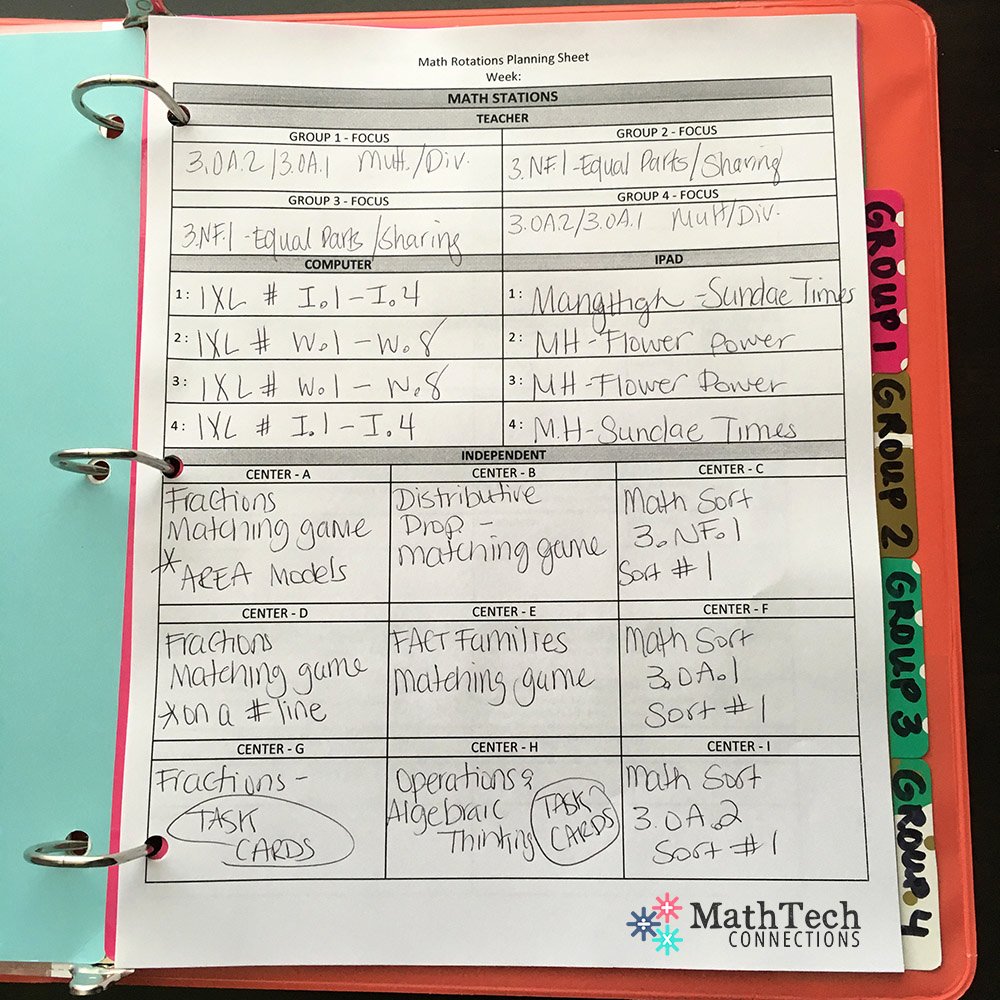 Math Rotations Planning Sheet
Week:
MATH STATIONS
TEACHER
GROUP 1 - FOCUS
3.OA.2/3.OA.1 Mult./Div.
GROUP 2 - FOCUS
3.NF.1-Equal Parts/Sharing
GROUP 3 - FOCUS
3.NF.1-Equal Parts/Sharing
GROUP 4 - FOCUS
3.OA.2/3.OA.1 Mult/Div.
COMPUTER
1: IXL # I.1-I.4
2: IXL # W.1-W.8
3: IXL # W.1-W.8
4: IXL # I.1-I.4
IPAD
1: MangHigh-Sundae Times
2: MH-Flower Power
3: MH-Flower Power
4: M.H-Sundae Times
INDEPENDENT
CENTER - A
Fractions
Matching game
* AREA Models
CENTER - B
Distributive
Drop -
matching game
CENTER - C
Math Sort
3.NF.1
Sort #1
CENTER - D
Fractions
Matching game
*on a # line
CENTER - E
FACT FAMILIES
matching game
CENTER - F
Math Sort
3.OA.1
Sort #1
CENTER - G
Fractions -
TASK
CARDS
CENTER - H
Operations &
Algebraic
Thinking
TASK
CARDS
CENTER - I
Math Sort
3.OA.2
Sort #1
GROUP 1
GROUP 2
GROUP 3
GROUP 4
MathTech
CONNECTIONS